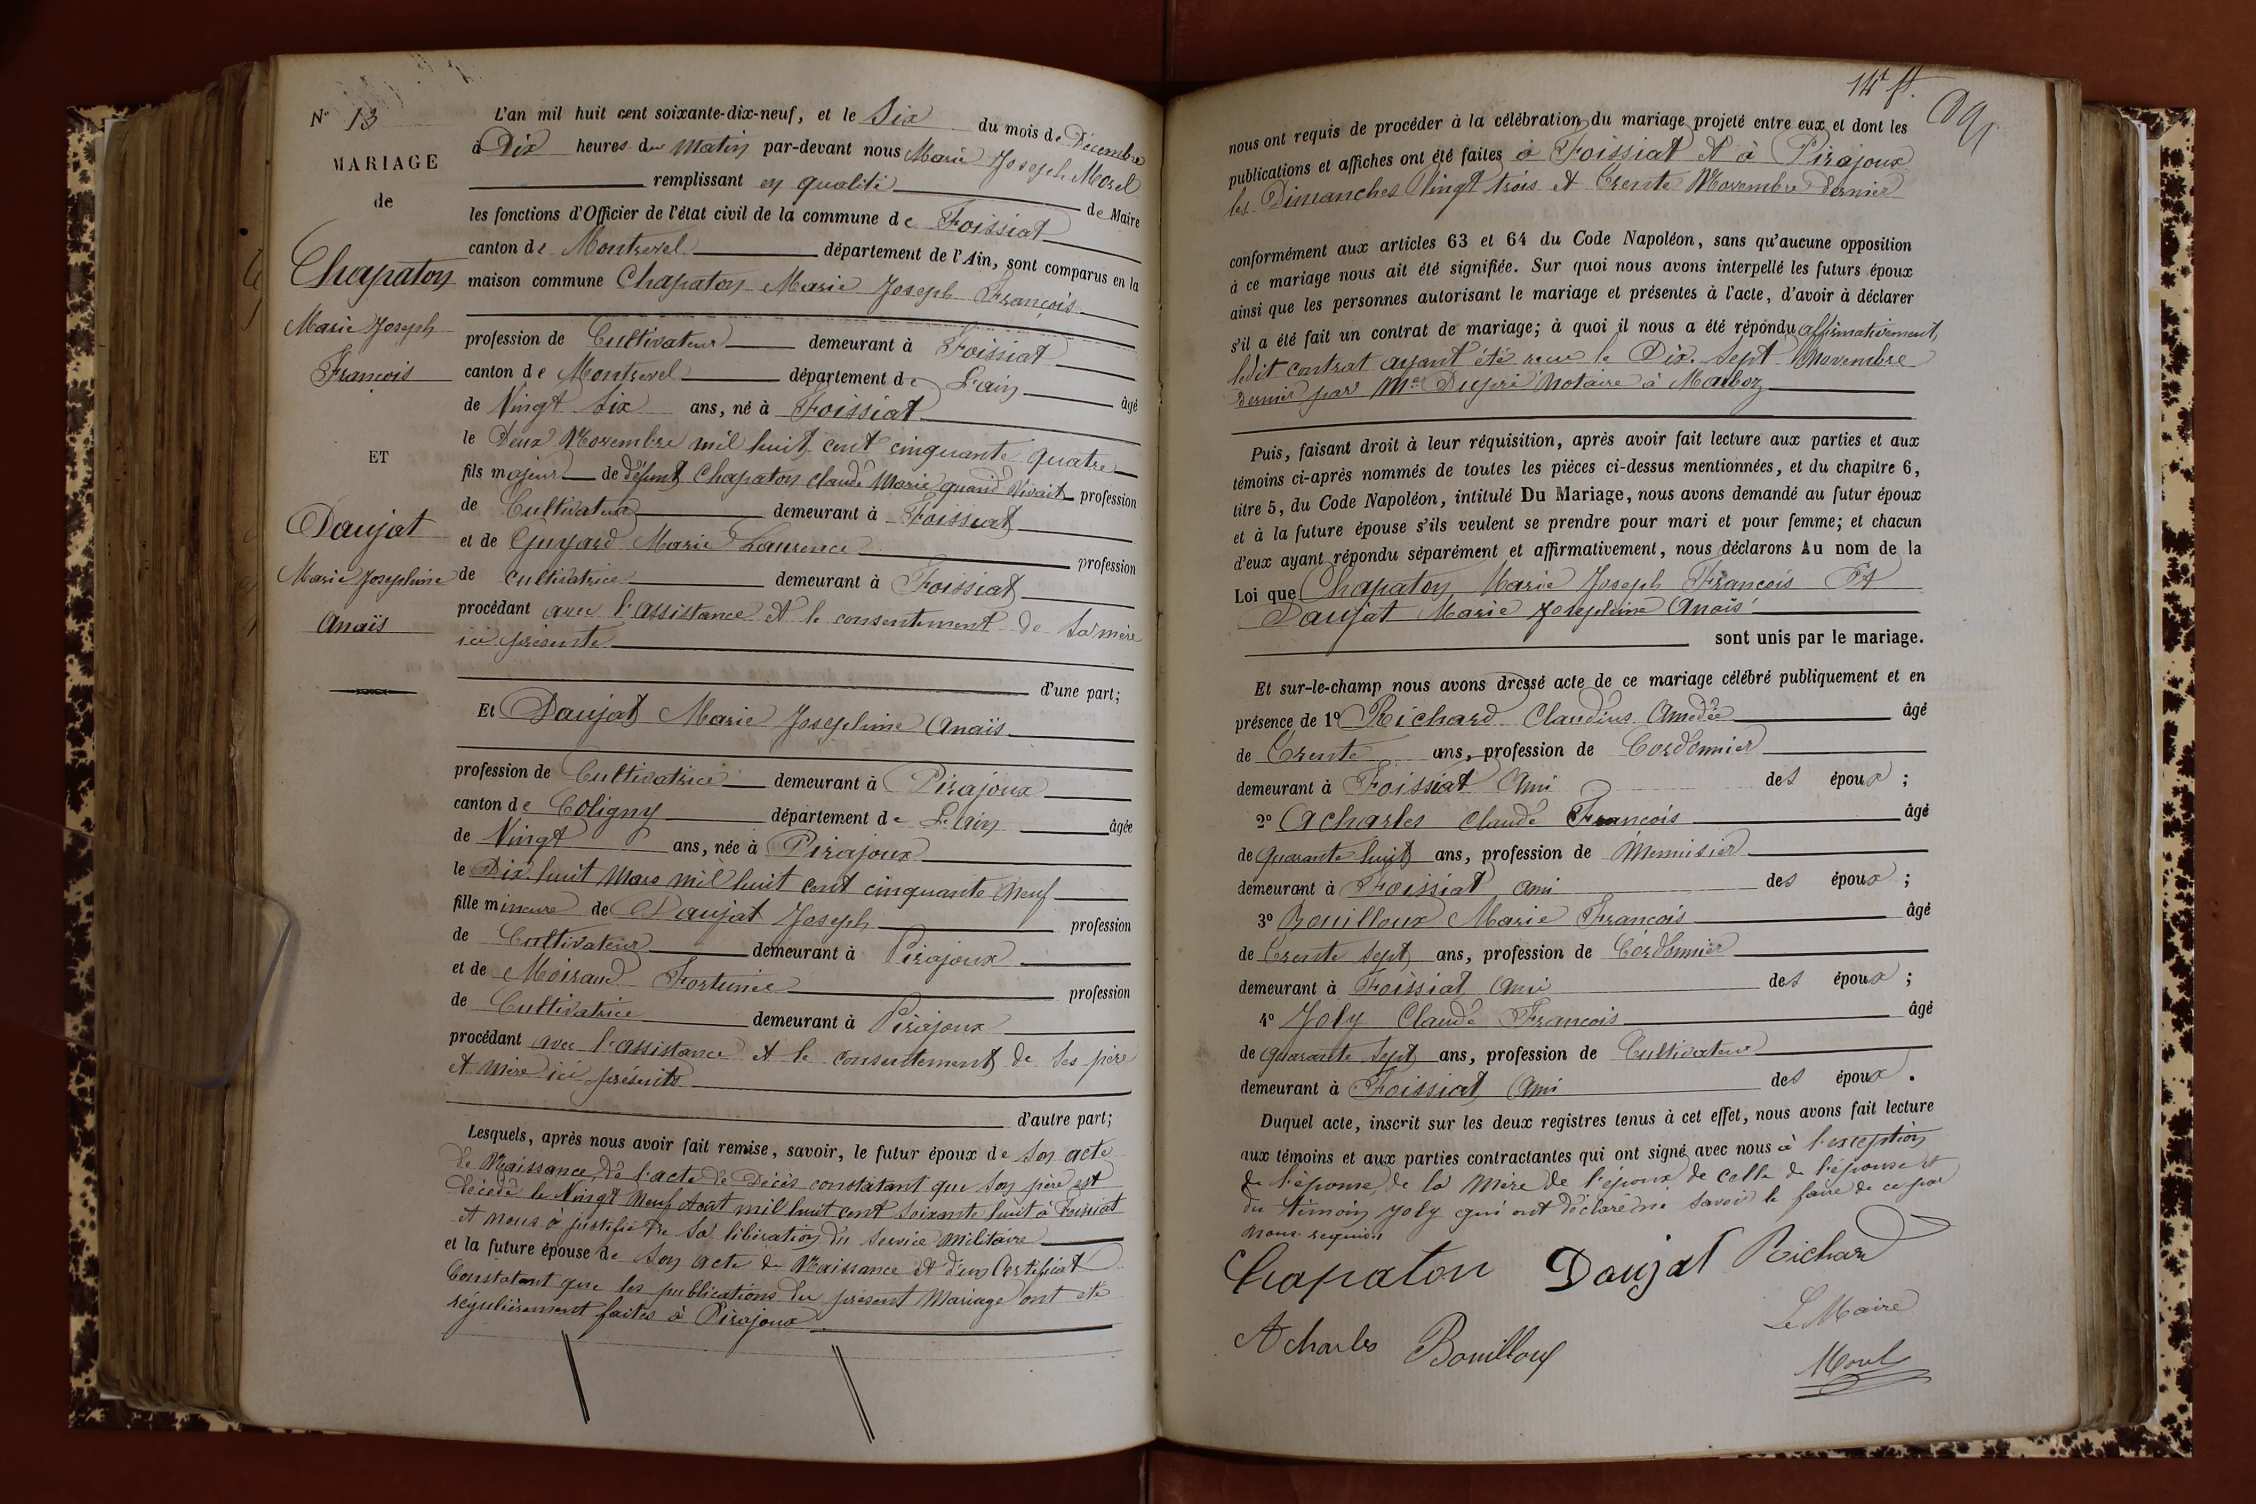 N° 13
MARIAGE
de
Chapaton
Marie Joseph
François
ET
Daujat
Marie Josephine
Anaïs
L'an mil huit cent soixante-dix-neuf, et le Six du mois de Décembre
à Dix heures du Matin par-devant nous Marie Joseph Morel
remplissant en qualité de Maire
les fonctions d'Officier de l'état civil de la commune de Foissiat
canton de Montrevel département de l'Ain, sont comparus en la
maison commune Chapaton Marie Joseph François
profession de Cultivateur demeurant à Foissiat
canton de Montrevel département de L'ain âgé
de Vingt Six ans, né à Foissiat
le Deux Novembre mil huit cent cinquante quatre
fils majeur de défunt Chapaton Claude Marie quand Vivait profession
de Cultivateur demeurant à Foissiat
et de Guyard Marie Laurence profession
de cultivatrice demeurant à Foissiat
procédant avec l'assistance et le consentement de Sa mère
ici presente
d'une part;
Et Daujat Marie Josephine Anaïs
profession de Cultivatrice demeurant à Pirajoux
canton de Coligny département de L'ain âgée
de Vingt ans, née à Pirajoux
le Dix huit Mars mil huit cent cinquante Neuf
fille mineure de Daujat Joseph profession
de Cultivateur demeurant à Pirajoux
et de Moiraud Fortunée profession
de Cultivatrice demeurant à Pirajoux
procédant avec l'assistance et le consentement de Ses père
et mère ici présents
d'autre part;
Lesquels, après nous avoir fait remise, savoir, le futur époux de Son acte
de Naissance, de l'acte de Décès constatant que Son père est
décédé le Vingt Neuf Aout mil huit cent soixante huit à Foissiat
et nous à justifié de Sa libération du Service Militaire
et la future épouse de Son acte de Naissance et d'un Certificat
Constatant que les publications du present Mariage ont été
régulièrement faites à Pirajoux
14 f.
nous ont requis de procéder à la célébration du mariage projeté entre eux et dont les
publications et affiches ont été faites à Foissiat et à Pirajoux
les Dimanches Vingt trois et Trente Novembre dernier
conformément aux articles 63 et 64 du Code Napoléon, sans qu'aucune opposition
à ce mariage nous ait été signifiée. Sur quoi nous avons interpellé les futurs époux
ainsi que les personnes autorisant le mariage et présentes à l'acte, d'avoir à déclarer
s'il a été fait un contrat de mariage; à quoi il nous a été répondu affirmativement,
ledit contrat ayant été recu le Dix-Sept Novembre
dernier par Me Notaire à Marboz
Puis, faisant droit à leur réquisition, après avoir fait lecture aux parties et aux
témoins ci-après nommés de toutes les pièces ci-dessus mentionnées, et du chapitre 6,
titre 5, du Code Napoléon, intitulé Du Mariage, nous avons demandé au futur époux
et à la future épouse s'ils veulent se prendre pour mari et pour femme; et chacun
d'eux ayant répondu séparément et affirmativement, nous déclarons Au nom de la
Loi que Chapaton Marie Joseph François Et
Daujat Marie Josephine Anaïs
sont unis par le mariage.
Et sur-le-champ nous avons dressé acte de ce mariage célébré publiquement et en
présence de 1° Richard Claudius Amédée âgé
de Trente ans, profession de Cordonnier
demeurant à Foissiat Ami des époux ;
2° Acharles Claude François âgé
de Quarante huit ans, profession de Menuisier
demeurant à Foissiat ami des époux ;
3° Bouilloux Marie François âgé
de Trente sept ans, profession de Cordonnier
demeurant à Foissiat Ami des époux ;
4° Joly Claude François âgé
de quarante Sept ans, profession de Cultivateur
demeurant à Foissiat Ami des époux .
Duquel acte, inscrit sur les deux registres tenus à cet effet, nous avons fait lecture
aux témoins et aux parties contractantes qui ont signé avec nous à l'exception
de l'épouse, de la Mère de l'époux de celle de l'épouse et
du témoin Joly qui ont déclaré ne Savoir le faire de ce par
nous requis
Chapaton Daujat Richard
Le Maire
Acharles Bouilloux
Morel